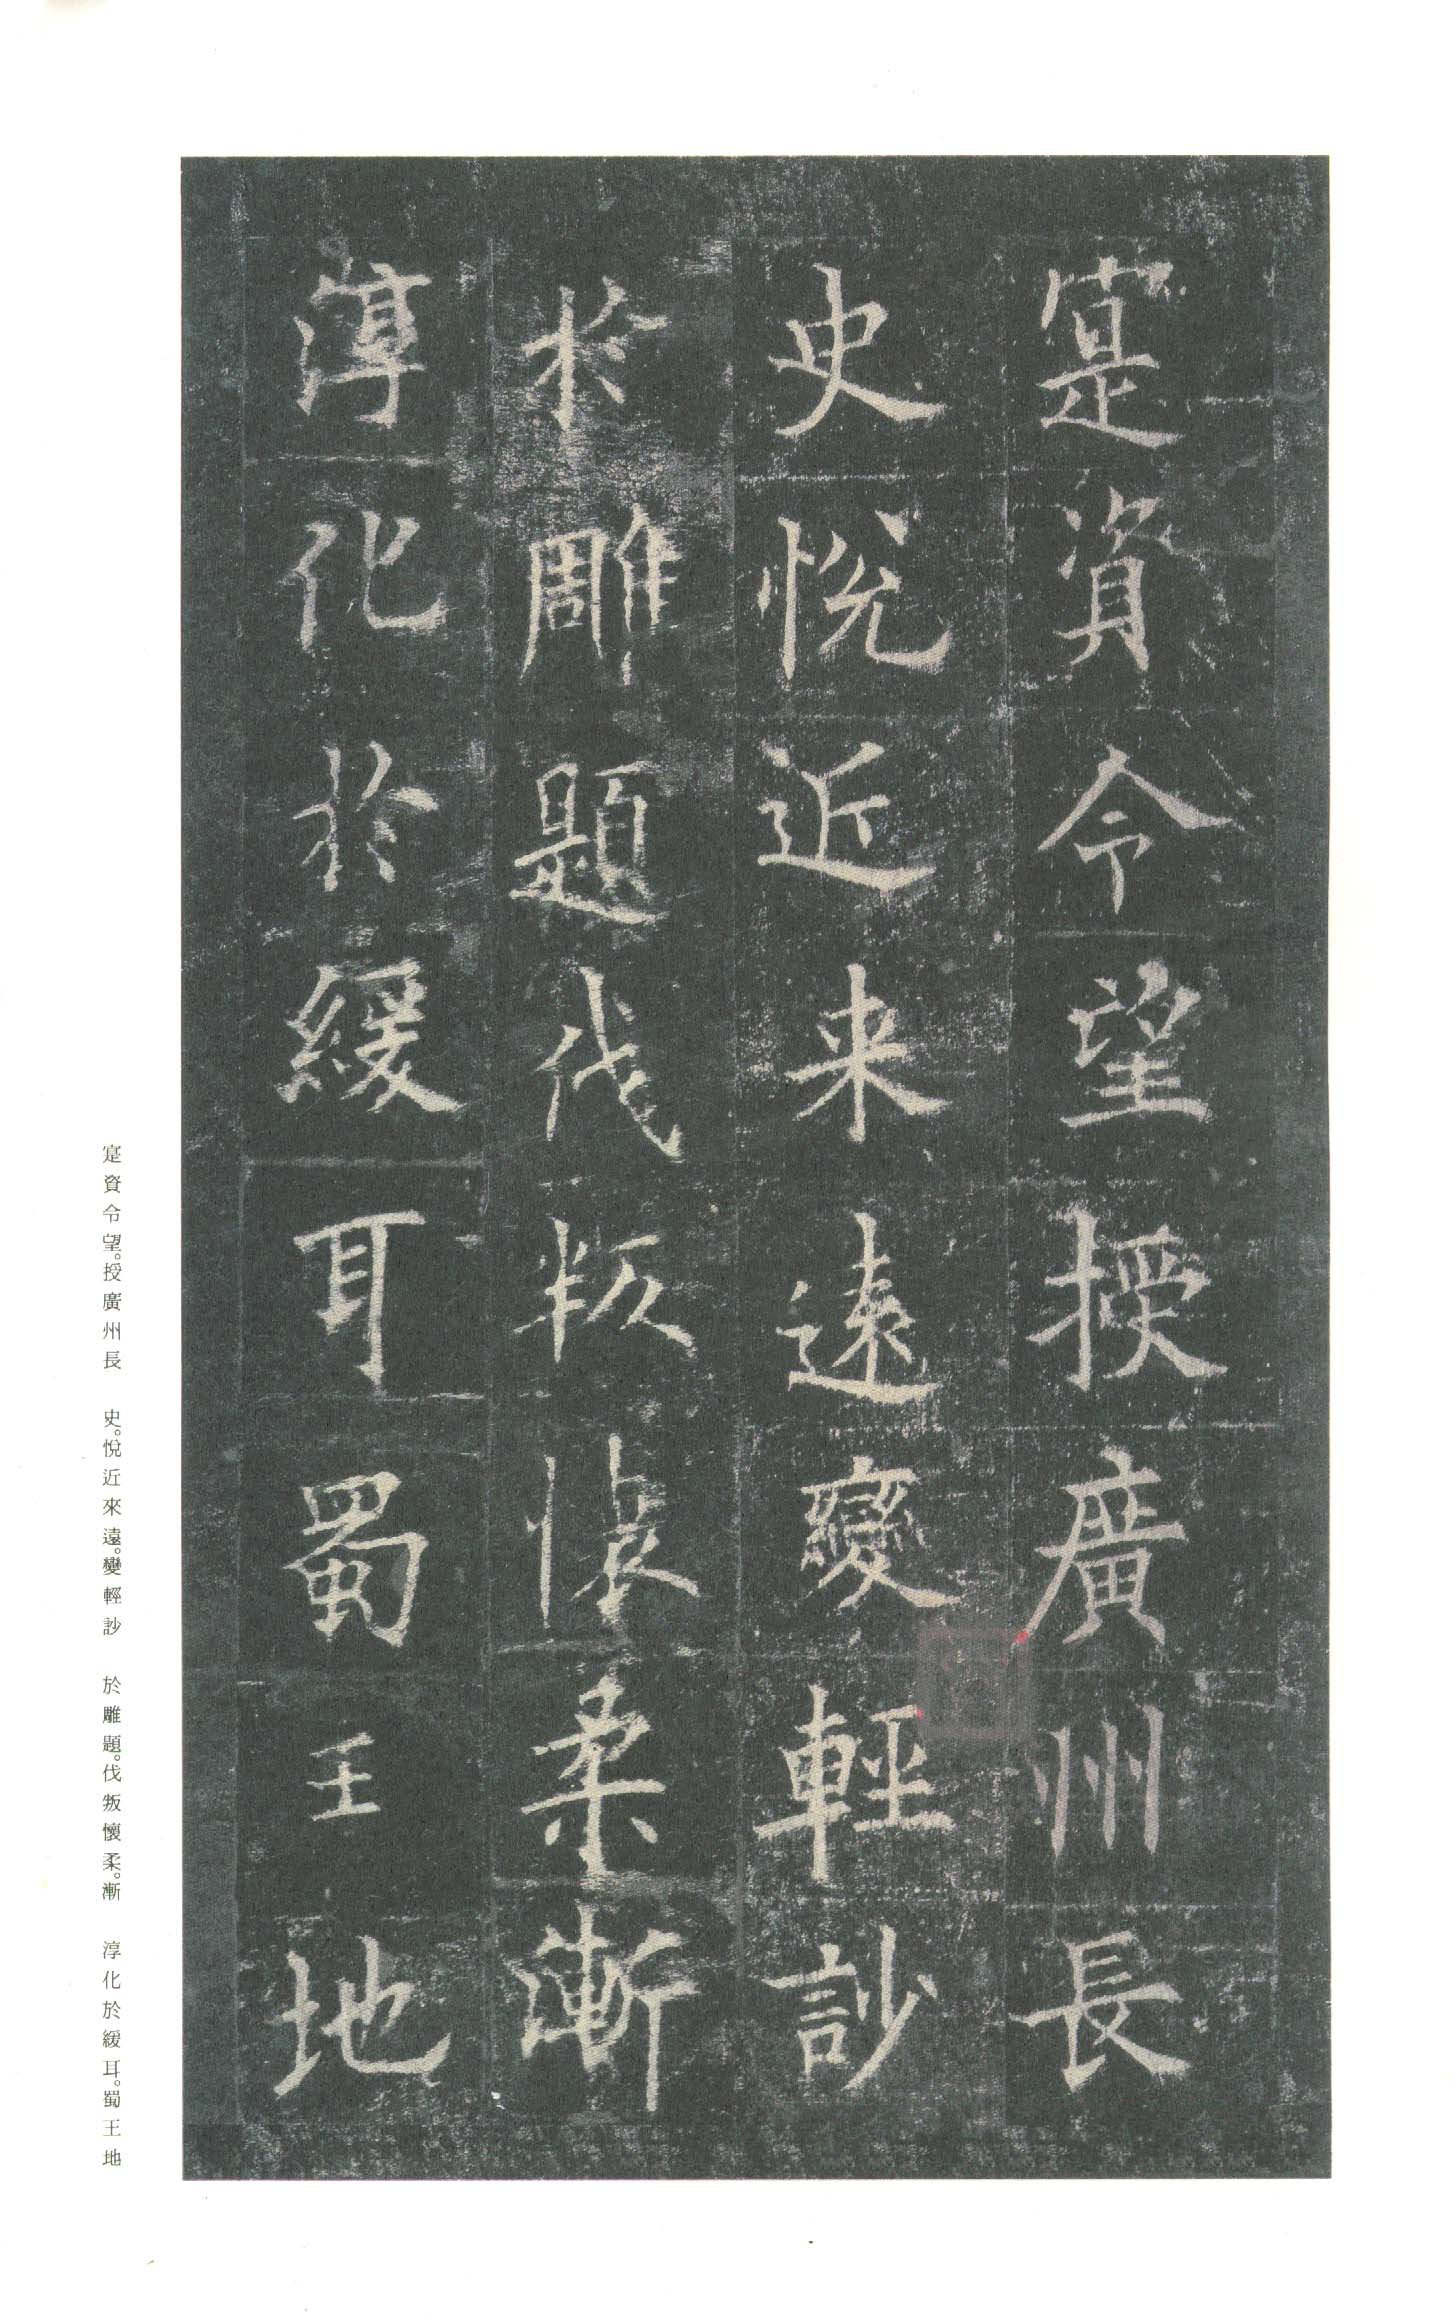 寔資令望授廣州長
史悅近来遠變輕訬
於雕題伐叛懷柔漸
淳化於緩耳蜀王地
寔資令望。授廣州長　史。悅近來遠。變輕訬　於雕題。伐叛懷柔。漸　淳化於緩耳。蜀王地